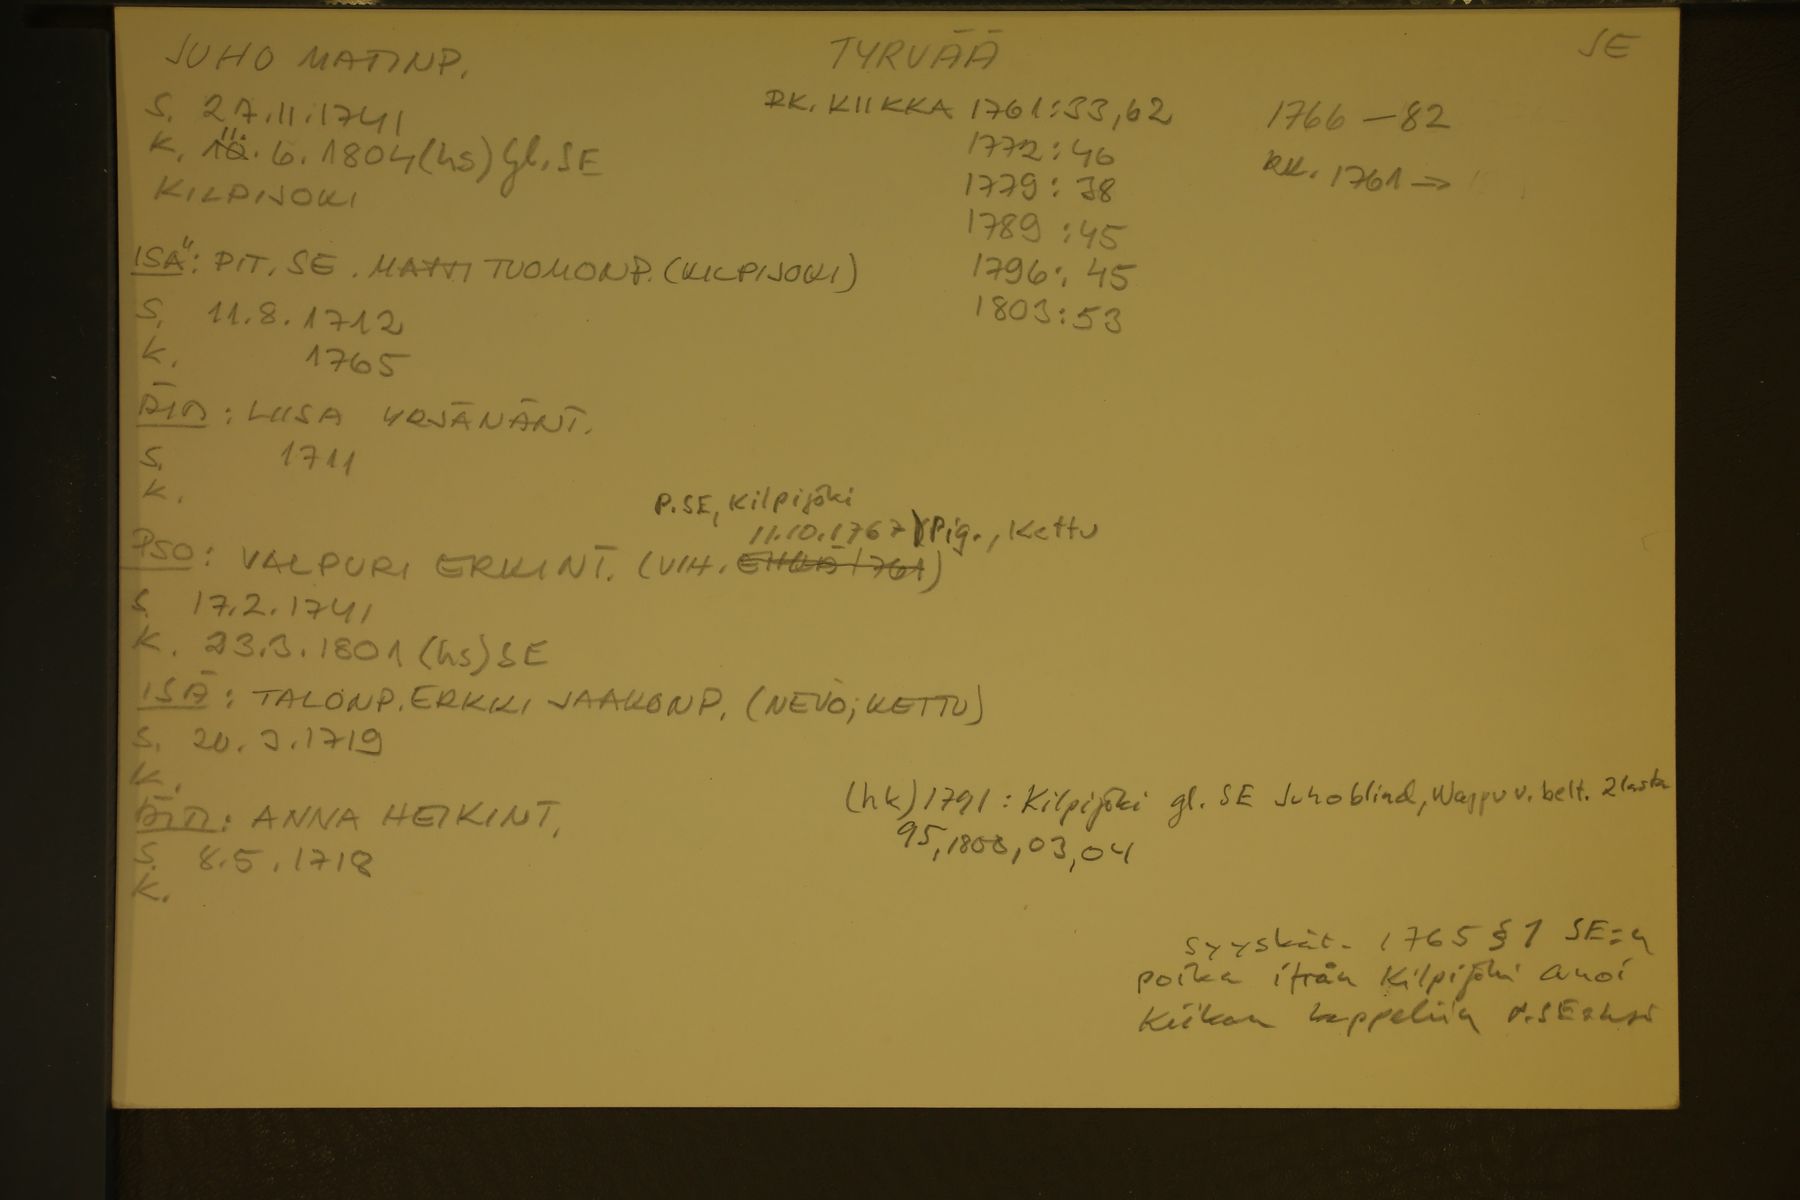 JUHO MATINP. TYRVÄÄ SE
S. 27.11.1741 RK. KIIKKA 1761:33,62 1766–82
K. 11.6.1804 (hs) gl. SE 1772:46 RK. 1761 →
KILPIJOKI 1779:38
1789:45
ISÄ: PIT. SE. MATTI TUOMONP. (KILPIJOKI) 1796:45
S. 11.8.1712 1803:53
K. 1765
ÄITI: LIISA YRJÄNÄNT.
S. 1711
K.
P.SE, Kilpijoki
11.10.1767 Pig., Kettu
PSO: VALPURI ERKINT. (VIH. 1761)
S. 17.2.1741
K. 23.3.1801 (hs) SE
ISÄ: TALONP. ERKKI JAAKONP. (NEVO; KETTU)
S. 20.3.1719
K.
ÄITI: ANNA HEIKINT.
S. 8.5.1718
K.
(hk) 1791: Kilpijoki gl. SE Juho blind, Wappu v. belt. 2 lasta
95, 1800, 03, 04
syyskär. 1765 § 1 SE:n
poika ifrån Kilpijoki anoi
Kiikan kappeliin p.SE:ksi